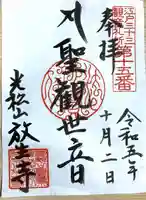 奉拝
江戸三十三
観音札所第十五番
聖観世音
令和五年
十月二日
光松山
放生寺